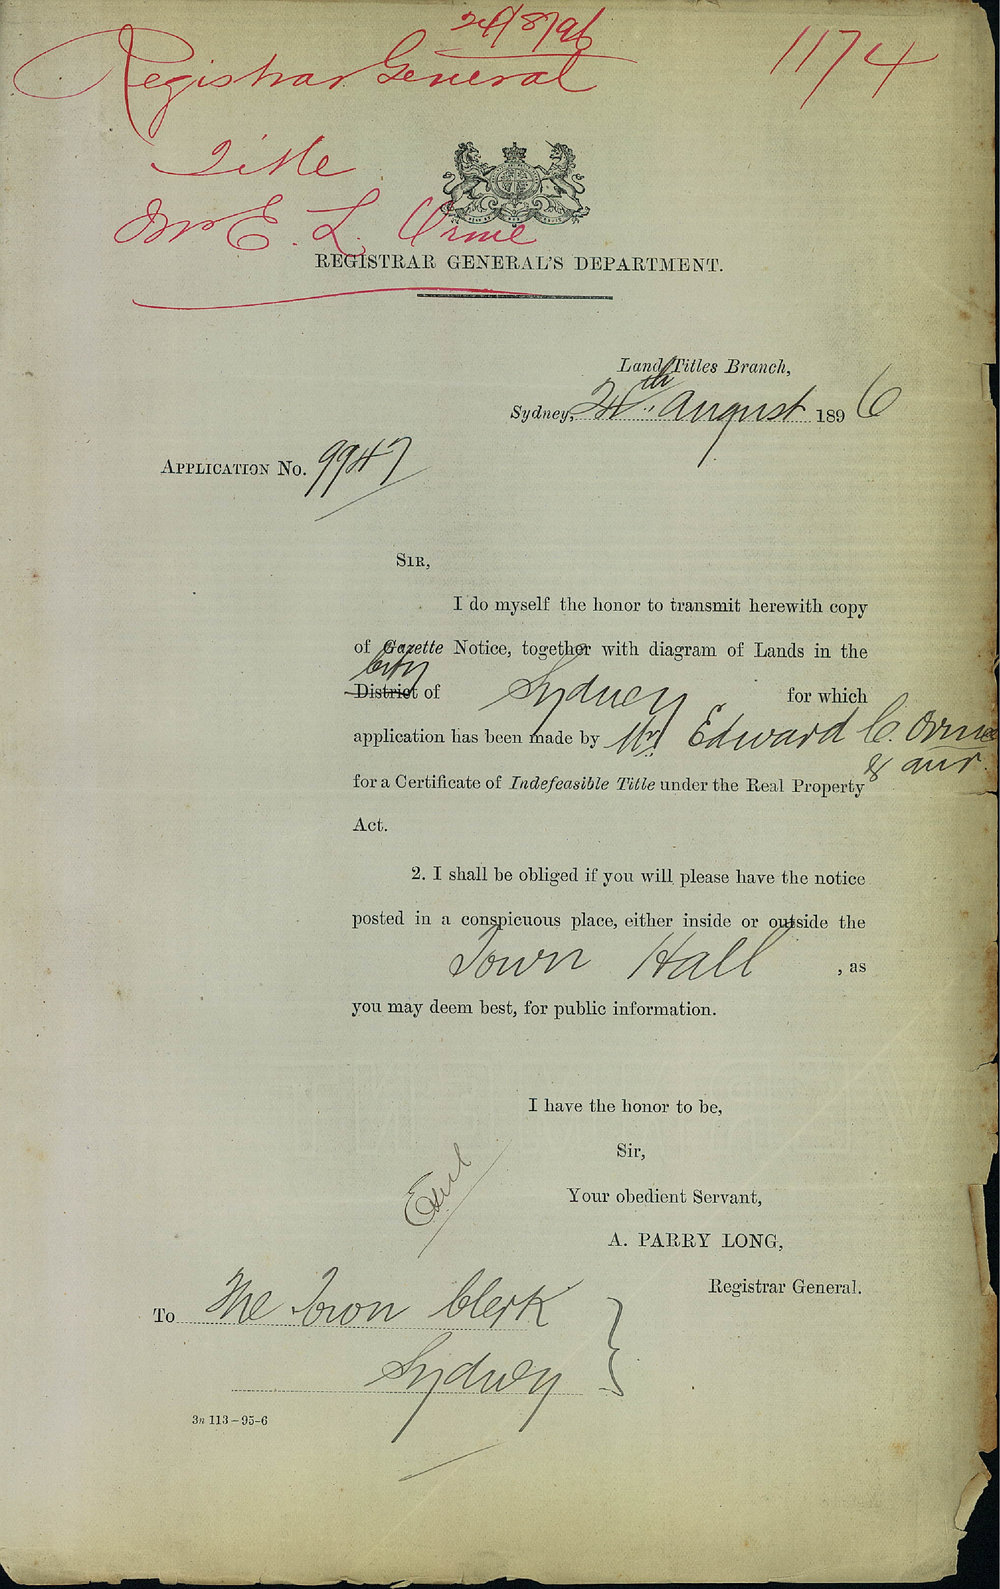 24/8/96
Registrar General
1174
Title
Mr E. L. Orme
REGISTRAR GENERAL'S DEPARTMENT.
Land Titles Branch,
Sydney, 24th August 1896
APPLICATION NO. 9947
SIR,
I do myself the honor to transmit herewith copy
of Gazette Notice, together with diagram of Lands in the
City
District of Sydney for which
application has been made by Mr Edward C. Orme
& anr.
for a Certificate of Indefeasible Title under the Real Property
Act.
2. I shall be obliged if you will please have the notice
posted in a conspicuous place, either inside or outside the
Town Hall , as
you may deem best, for public information.
I have the honor to be,
Sir,
Your obedient Servant,
A. PARRY LONG,
Registrar General.
To The Town Clerk
Sydney
3n 113-95-6